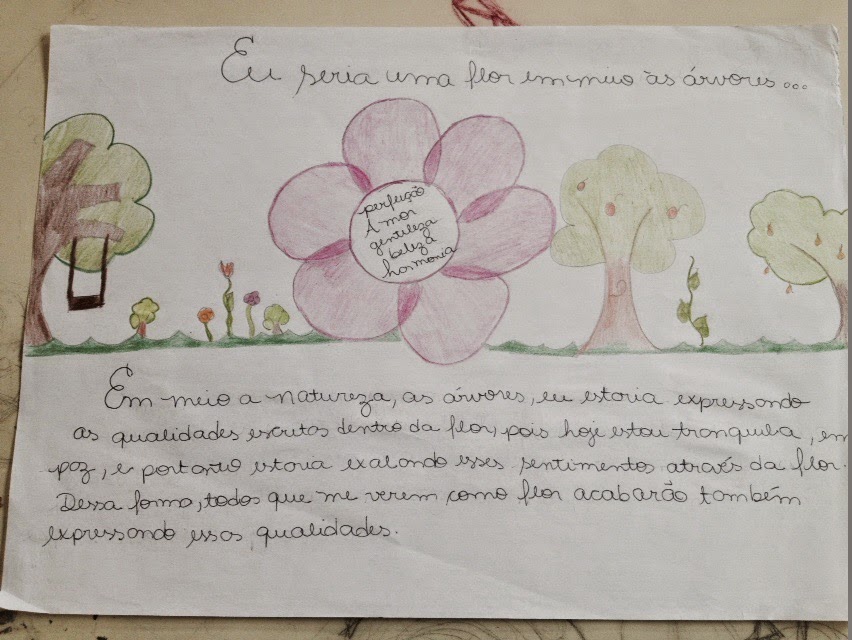 Eu seria uma flor em meio às árvores...
perfeição
Amor
gentileza
beleza
harmonia
Em meio a natureza, as árvores, eu estaria expressando
as qualidades escritas dentro da flor, pois hoje estou tranquila, em
paz, e portanto estaria exalando esses sentimentos através da flor.
Dessa forma, todos que me verem como flor acabarão também
expressando essas qualidades.